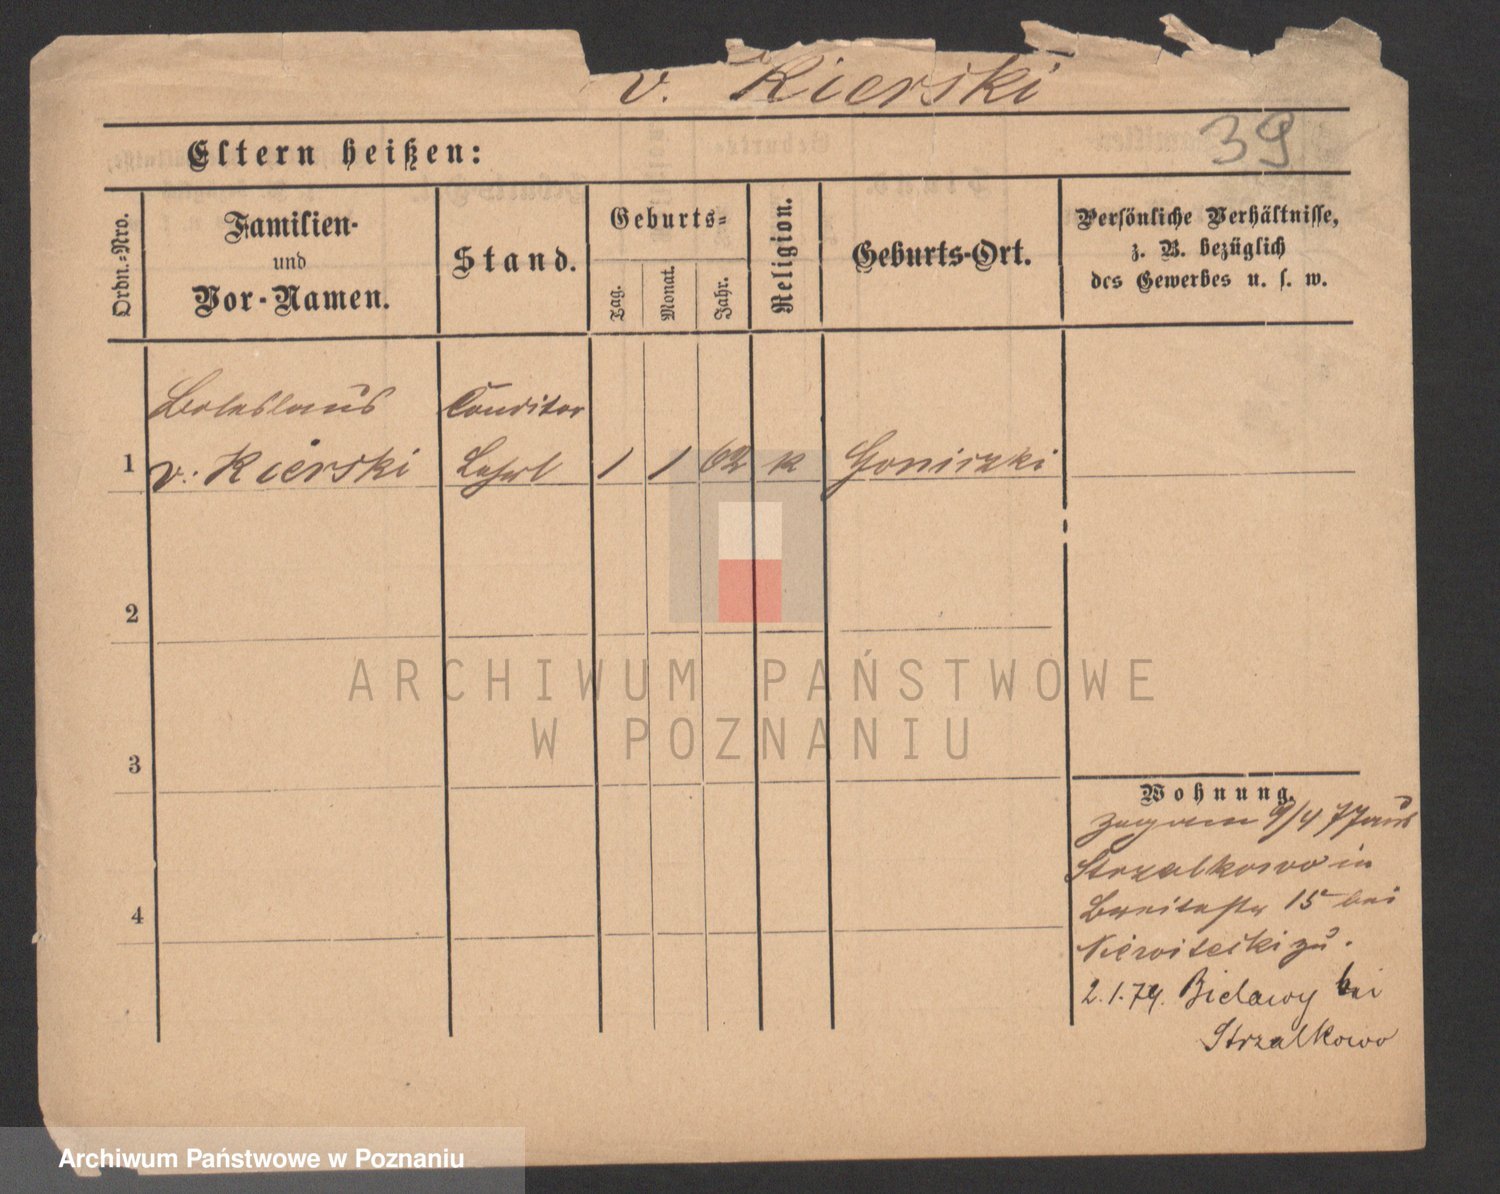 v. Kierski
39
Eltern heißen:
Ordn.-Nro.
Familien-
und
Vor-Namen.
Stand.
Geburts-
Tag.
Monat.
Jahr.
Religion.
Geburts-Ort.
Persönliche Verhältnisse,
z. B. bezüglich
des Gewerbes u. s. w.
Boleslaus
v. Kierski
Conditor
Lehrl
1 1 1 62 k
2
3
4
Wohnung.
9/4 77 aus
Strzalkowo in
Breitestr 15 bei
zu.
2.1.79. Bielawy bei
Strzalkowo
ARCHIWUM PAŃSTWOWE
W POZNANIU
Archiwum Państwowe w Poznaniu